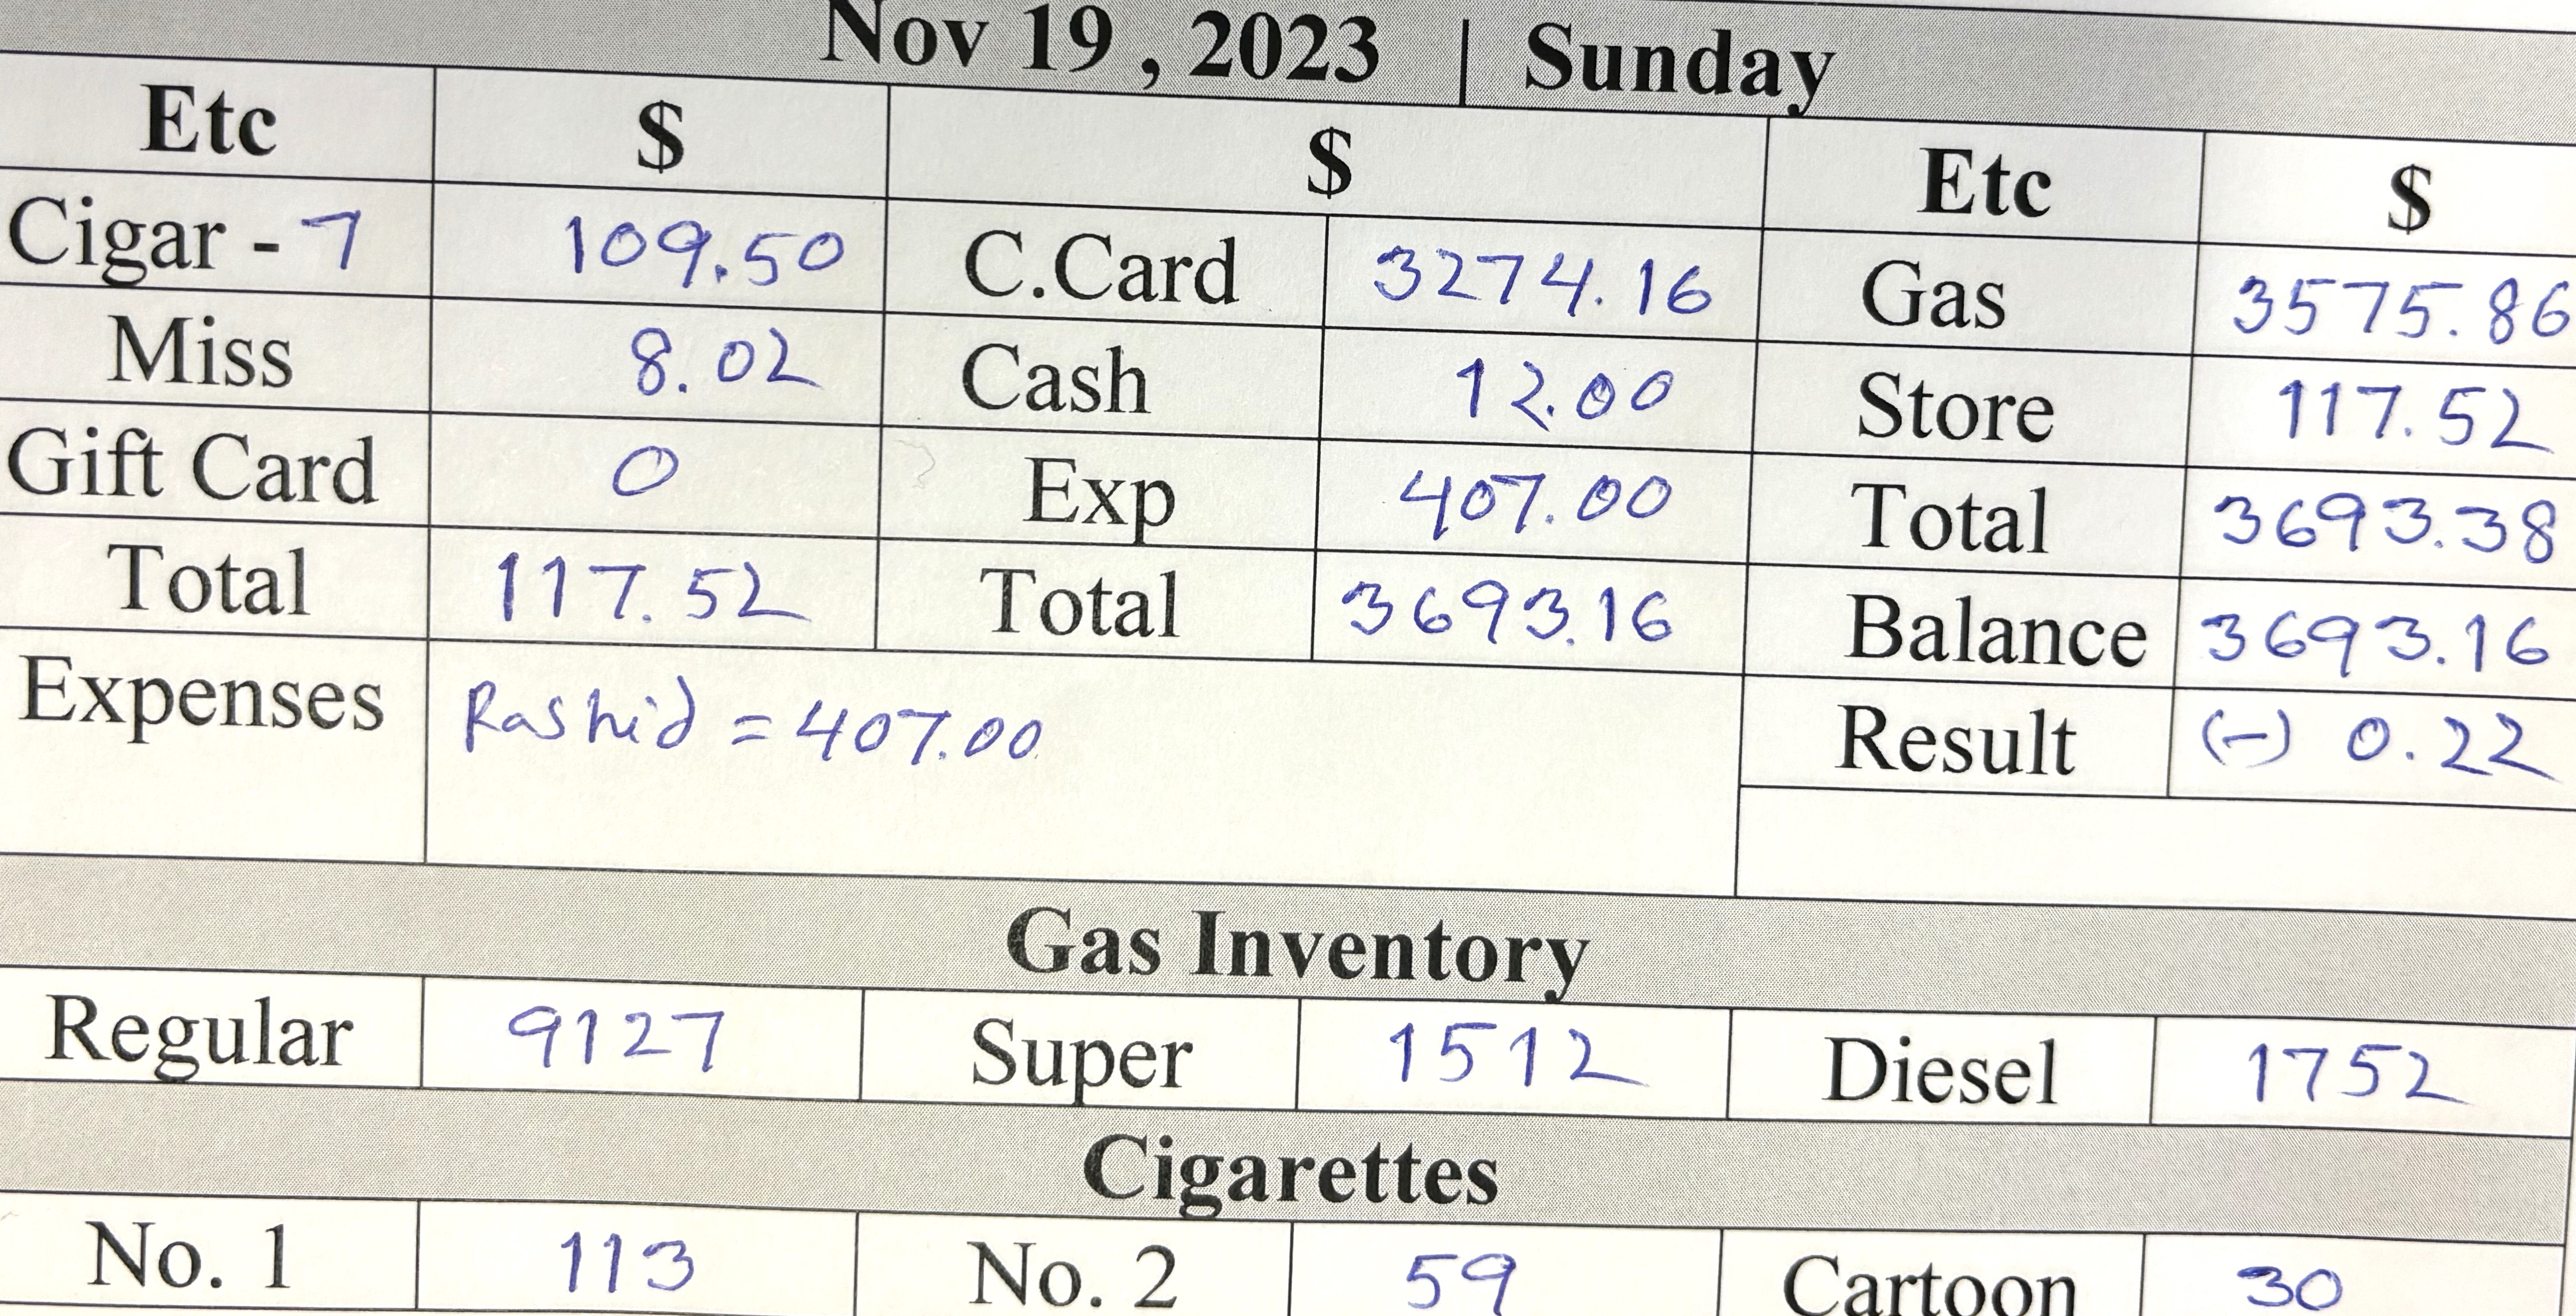 Nov 19 , 2023 | Sunday
Etc $ $ Etc $
Cigar - 7 109.50 C.Card 3274.16 Gas 3575.86
Miss 8.02 Cash 12.00 Store 117.52
Gift Card 0 Exp 407.00 Total 3693.38
Total 117.52 Total 3693.16 Balance 3693.16
Expenses Rashid = 407.00 Result (-) 0.22
Gas Inventory
Regular 9127 Super 1512 Diesel 1752
Cigarettes
No. 1 113 No. 2 59 Cartoon 30